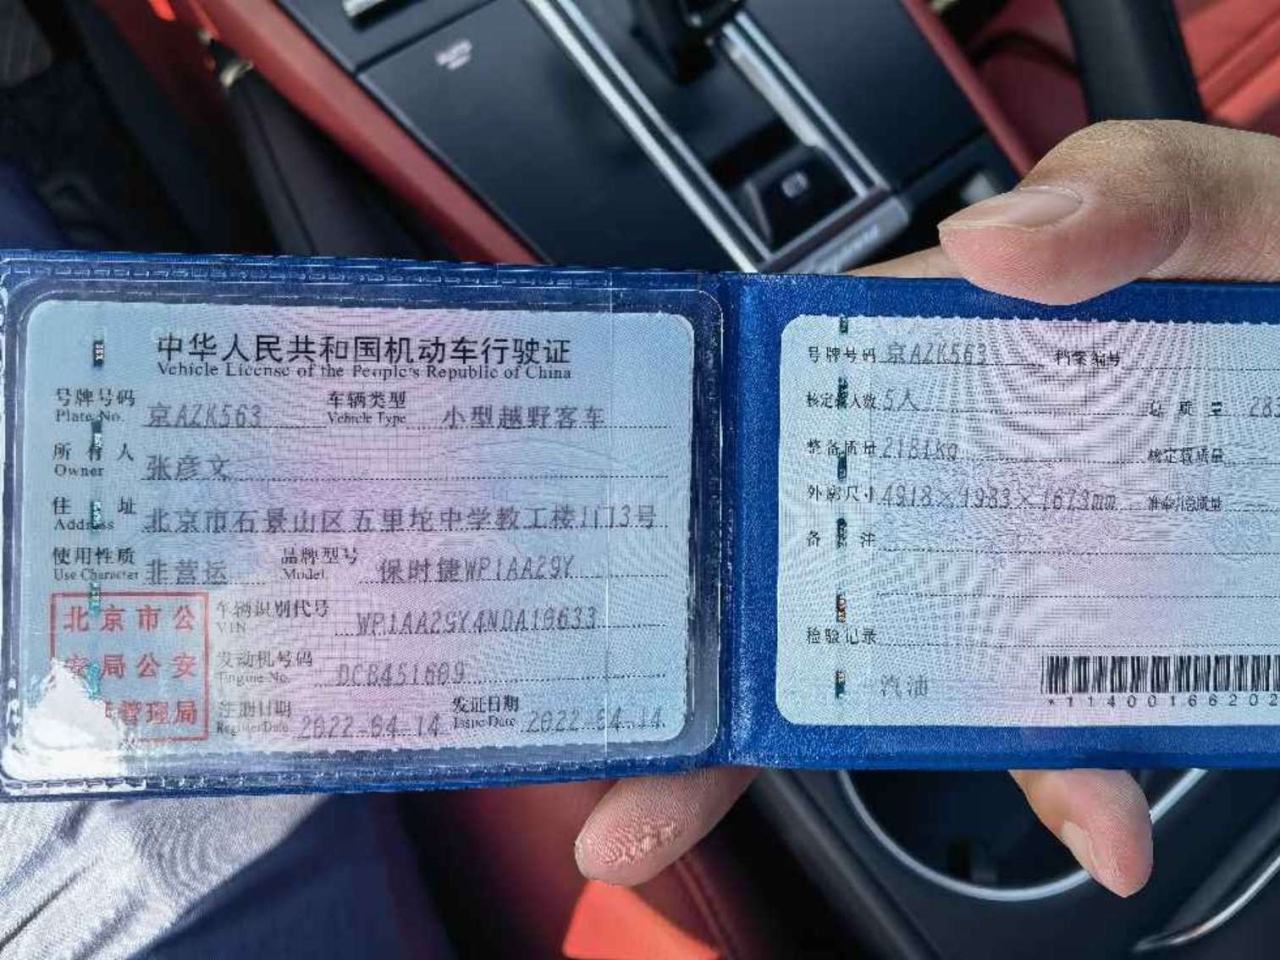 中华人民共和国机动车行驶证
Vehicle License of the People's Republic of China
号牌号码 京AZK563 车辆类型 小型越野客车
Plate No. Vehicle Type
所有人 张彦文
Owner
住址 北京市石景山区五里坨中学教工楼1门3号
Address
使用性质 非营运 品牌型号 保时捷WP1AA29Y
Use Character Model
车辆识别代号 WP1AA29Y4NDA10633
VIN
发动机号码 DCB451609
Engine No.
注册日期 2022-04-14 发证日期 2022-04-14
Register Date Issue Date
北京市公
安局公安
管理局
号牌号码 京AZK563 档案编号
核定载人数 5人 总质量 28
整备质量 2181kg 核定载质量
外廓尺寸 4918×1983×1673mm 准牵引总质量
备注
检验记录
汽油
*11400166202